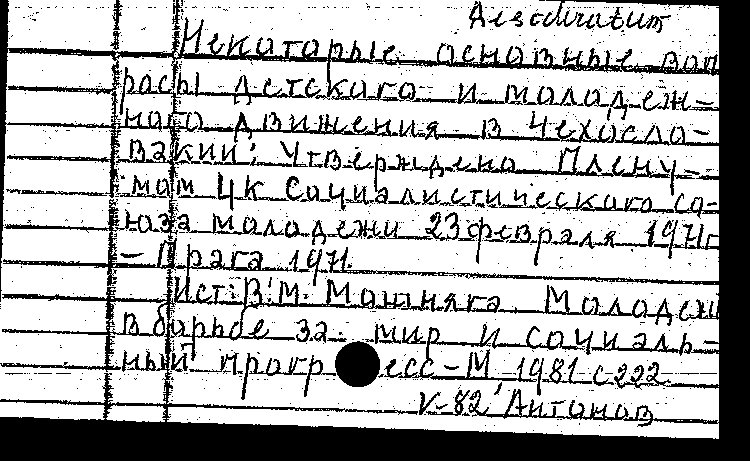 Desideratum
Некоторые основные воп
росы детского и молодеж-
ного движения в Чехосло-
вакии: Утверждено Плену-
мом ЦК Социалистического со-
юза молодежи 23 февраля 1971г
– Прага 1971.
Ист: В.М. Мошняга. Молодеж
в борьбе за мир и социаль-
ный прогресс – М, 1981 с 222
V-82 Антонов